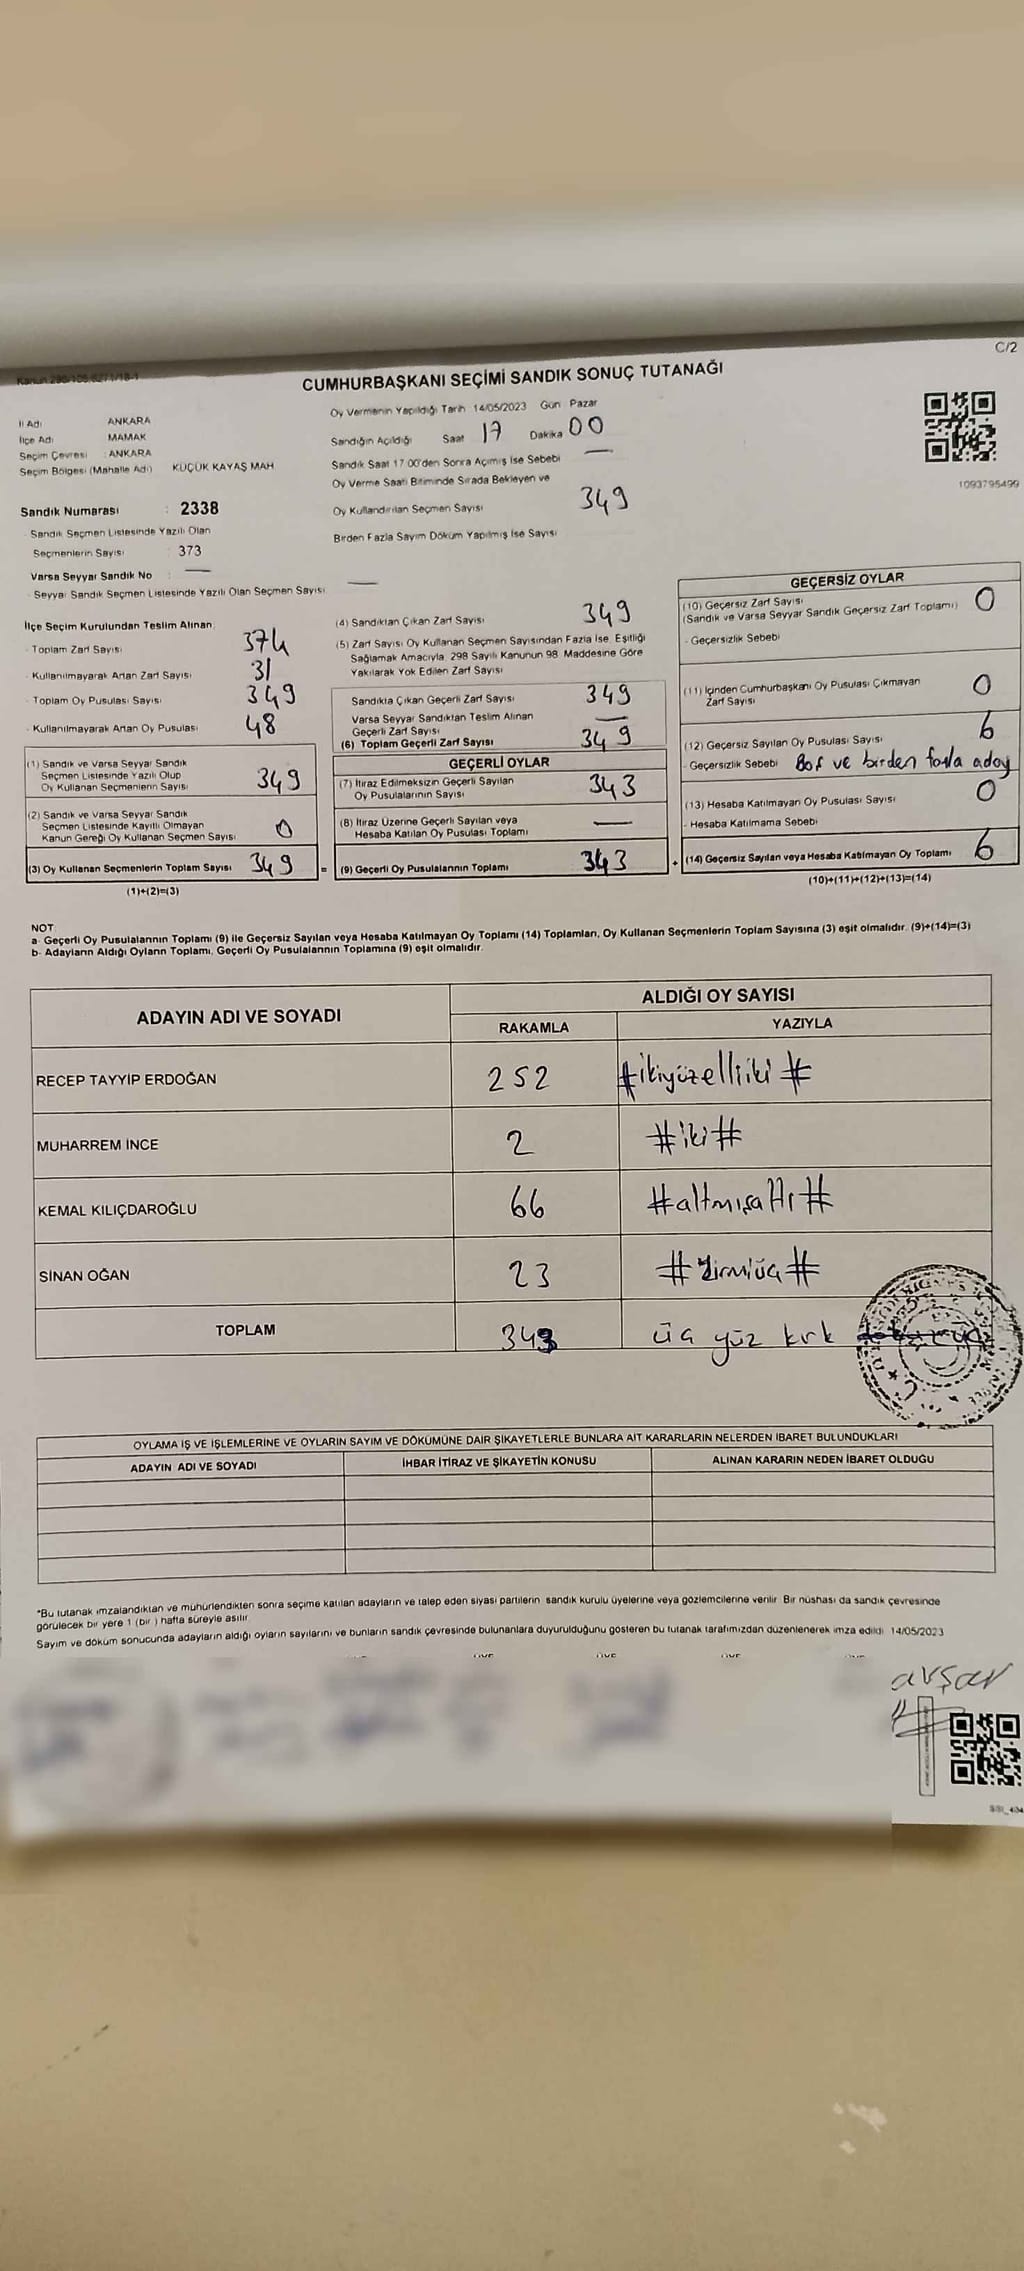 C/2
Kanun 298/105/6271/18-1
CUMHURBAŞKANI SEÇİMİ SANDIK SONUÇ TUTANAĞI
İl Adı ANKARA
İlçe Adı MAMAK
Seçim Çevresi : ANKARA
Seçim Bölgesi (Mahalle Adı) KÜÇÜK KAYAŞ MAH
Sandık Numarası : 2338
- Sandık Seçmen Listesinde Yazılı Olan
Seçmenlerin Sayısı : 373
Varsa Seyyar Sandık No : —
- Seyyar Sandık Seçmen Listesinde Yazılı Olan Seçmen Sayısı —
Oy Vermenin Yapıldığı Tarih 14/05/2023 Gün Pazar
Sandığın Açıldığı Saat 17 Dakika 00
Sandık Saat 17 00'den Sonra Açımış İse Sebebi —
Oy Verme Saati Bitiminde Sırada Bekleyen ve
Oy Kullandırılan Seçmen Sayısı 349
Birden Fazla Sayım Döküm Yapılmış İse Sayısı
1093795499
İlçe Seçim Kurulundan Teslim Alınan
- Toplam Zarf Sayısı 374
- Kullanılmayarak Artan Zarf Sayısı 31
- Toplam Oy Pusulası Sayısı 349
- Kullanılmayarak Artan Oy Pusulası 48
(1) Sandık ve Varsa Seyyar Sandık
Seçmen Listesinde Yazılı Olup
Oy Kullanan Seçmenlerin Sayısı 349
(2) Sandık ve Varsa Seyyar Sandık
Seçmen Listesinde Kayıtlı Olmayan
Kanun Gereği Oy Kullanan Seçmen Sayısı 0
(3) Oy Kullanan Seçmenlerin Toplam Sayısı 349 =
(1)+(2)=(3)
(4) Sandıktan Çıkan Zarf Sayısı 349
(5) Zarf Sayısı Oy Kullanan Seçmen Sayısından Fazla İse, Eşitliği
Sağlamak Amacıyla 298 Sayılı Kanunun 98. Maddesine Göre
Yakılarak Yok Edilen Zarf Sayısı
Sandıkta Çıkan Geçerli Zarf Sayısı 349
Varsa Seyyar Sandıktan Teslim Alınan
Geçerli Zarf Sayısı —
(6) Toplam Geçerli Zarf Sayısı 349
GEÇERLİ OYLAR
(7) İtiraz Edilmeksizin Geçerli Sayılan
Oy Pusulalarının Sayısı 343
(8) İtiraz Üzerine Geçerli Sayılan veya
Hesaba Katılan Oy Pusulası Toplamı —
(9) Geçerli Oy Pusulalarının Toplamı 343 +
GEÇERSİZ OYLAR
(10) Geçersiz Zarf Sayısı 0
(Sandık ve Varsa Seyyar Sandık Geçersiz Zarf Toplamı)
- Geçersizlik Sebebi
(11) İçinden Cumhurbaşkanı Oy Pusulası Çıkmayan
Zarf Sayısı 0
(12) Geçersiz Sayılan Oy Pusulası Sayısı 6
- Geçersizlik Sebebi Boş ve birden fazla aday
(13) Hesaba Katılmayan Oy Pusulası Sayısı 0
- Hesaba Katılmama Sebebi
(14) Geçersiz Sayılan veya Hesaba Katılmayan Oy Toplamı 6
(10)+(11)+(12)+(13)=(14)
NOT
a- Geçerli Oy Pusulalarının Toplamı (9) ile Geçersiz Sayılan veya Hesaba Katılmayan Oy Toplamı (14) Toplamları, Oy Kullanan Seçmenlerin Toplam Sayısına (3) eşit olmalıdır. (9)+(14)=(3)
b- Adayların Aldığı Oyların Toplamı, Geçerli Oy Pusulalarının Toplamına (9) eşit olmalıdır.
ADAYIN ADI VE SOYADI ALDIĞI OY SAYISI
RAKAMLA YAZIYLA
RECEP TAYYİP ERDOĞAN 252 #ikiyüzelliiki#
MUHARREM İNCE 2 #iki#
KEMAL KILIÇDAROĞLU 66 #altmışaltı#
SİNAN OĞAN 23 #yirmiüç#
TOPLAM 343 üç yüz kırk
OYLAMA İŞ VE İŞLEMLERİNE VE OYLARIN SAYIM VE DÖKÜMÜNE DAİR ŞİKAYETLERLE BUNLARA AİT KARARLARIN NELERDEN İBARET BULUNDUKLARI
ADAYIN ADI VE SOYADI İHBAR İTİRAZ VE ŞİKAYETİN KONUSU ALINAN KARARIN NEDEN İBARET OLDUĞU
*Bu tutanak imzalandıktan ve mühürlendikten sonra seçime katılan adayların ve talep eden siyasi partilerin sandık kurulu üyelerine veya gözlemcilerine verilir. Bir nüshası da sandık çevresinde
görülecek bir yere 1 (bir ) hafta süreyle asılır.
Sayım ve döküm sonucunda adayların aldığı oyların sayılarını ve bunların sandık çevresinde bulunanlara duyurulduğunu gösteren bu tutanak tarafımızdan düzenlenerek imza edildi. 14/05/2023
avşar